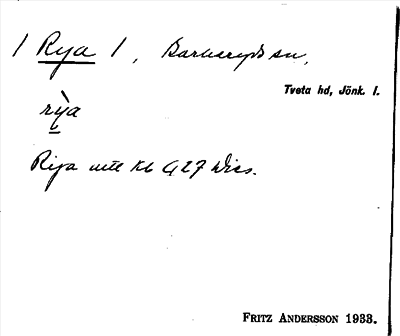 / Rya /, Barkeryds sn,
Tveta hd, Jönk. l.
rỳa
Rija utt Kb G 27 Wiss.
FRITZ ANDERSSON 1933.